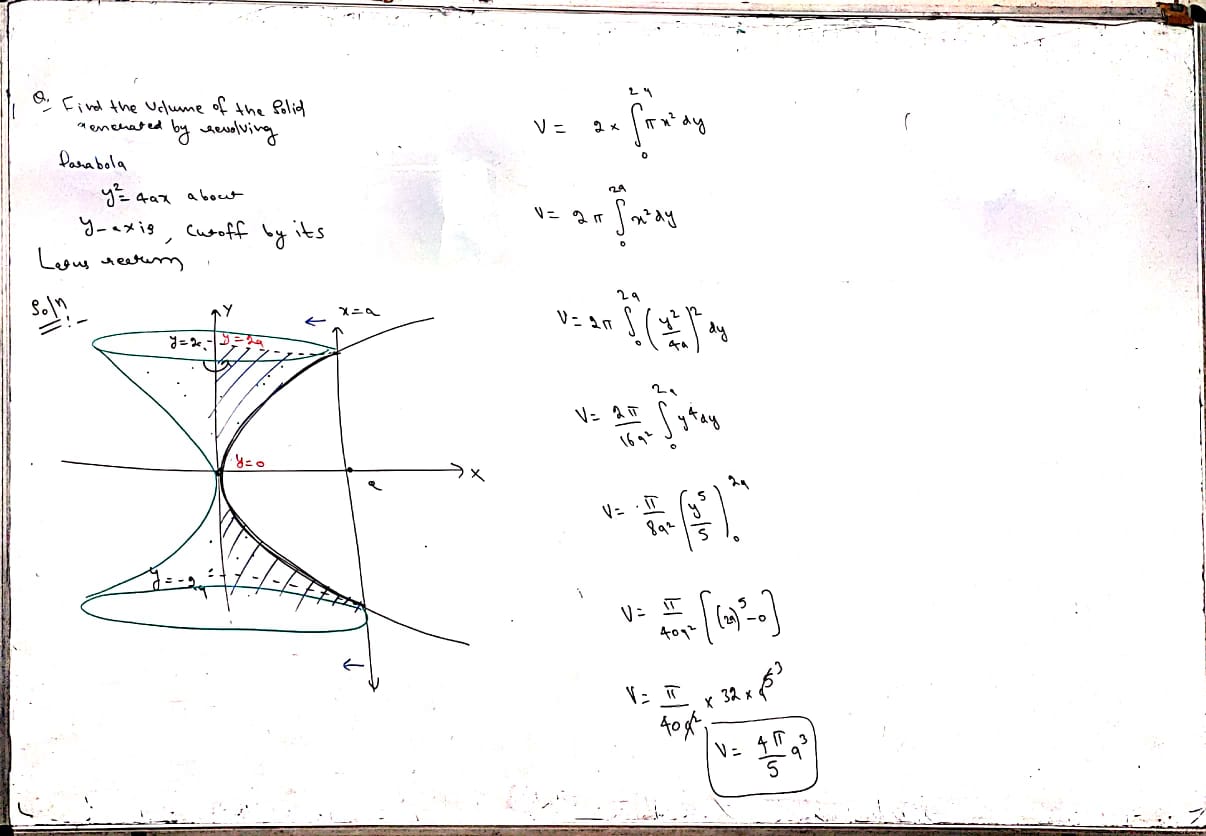 Q. Find the Volume of the Solid
generated by revolving
Parabola
y² = 4ax about
y-axis, Cutoff by its
Latus rectum
Solⁿ:-
Y
← x=a
y=2a
y=2a
y=0
X
a
y=-2a
←
V = 2× ∫₀²ᵃ πx² dy
V = 2π ∫₀²ᵃ x² dy
V = 2π ∫₀²ᵃ (y²/4a)² dy
V = 2π/16a² ∫₀²ᵃ y⁴ dy
V = π/8a² (y⁵/5)₀²ᵃ
V = π/40a² [(2a)⁵-0]
V = π/40a² × 32 × a⁵ ³
V = 4π/5 a³